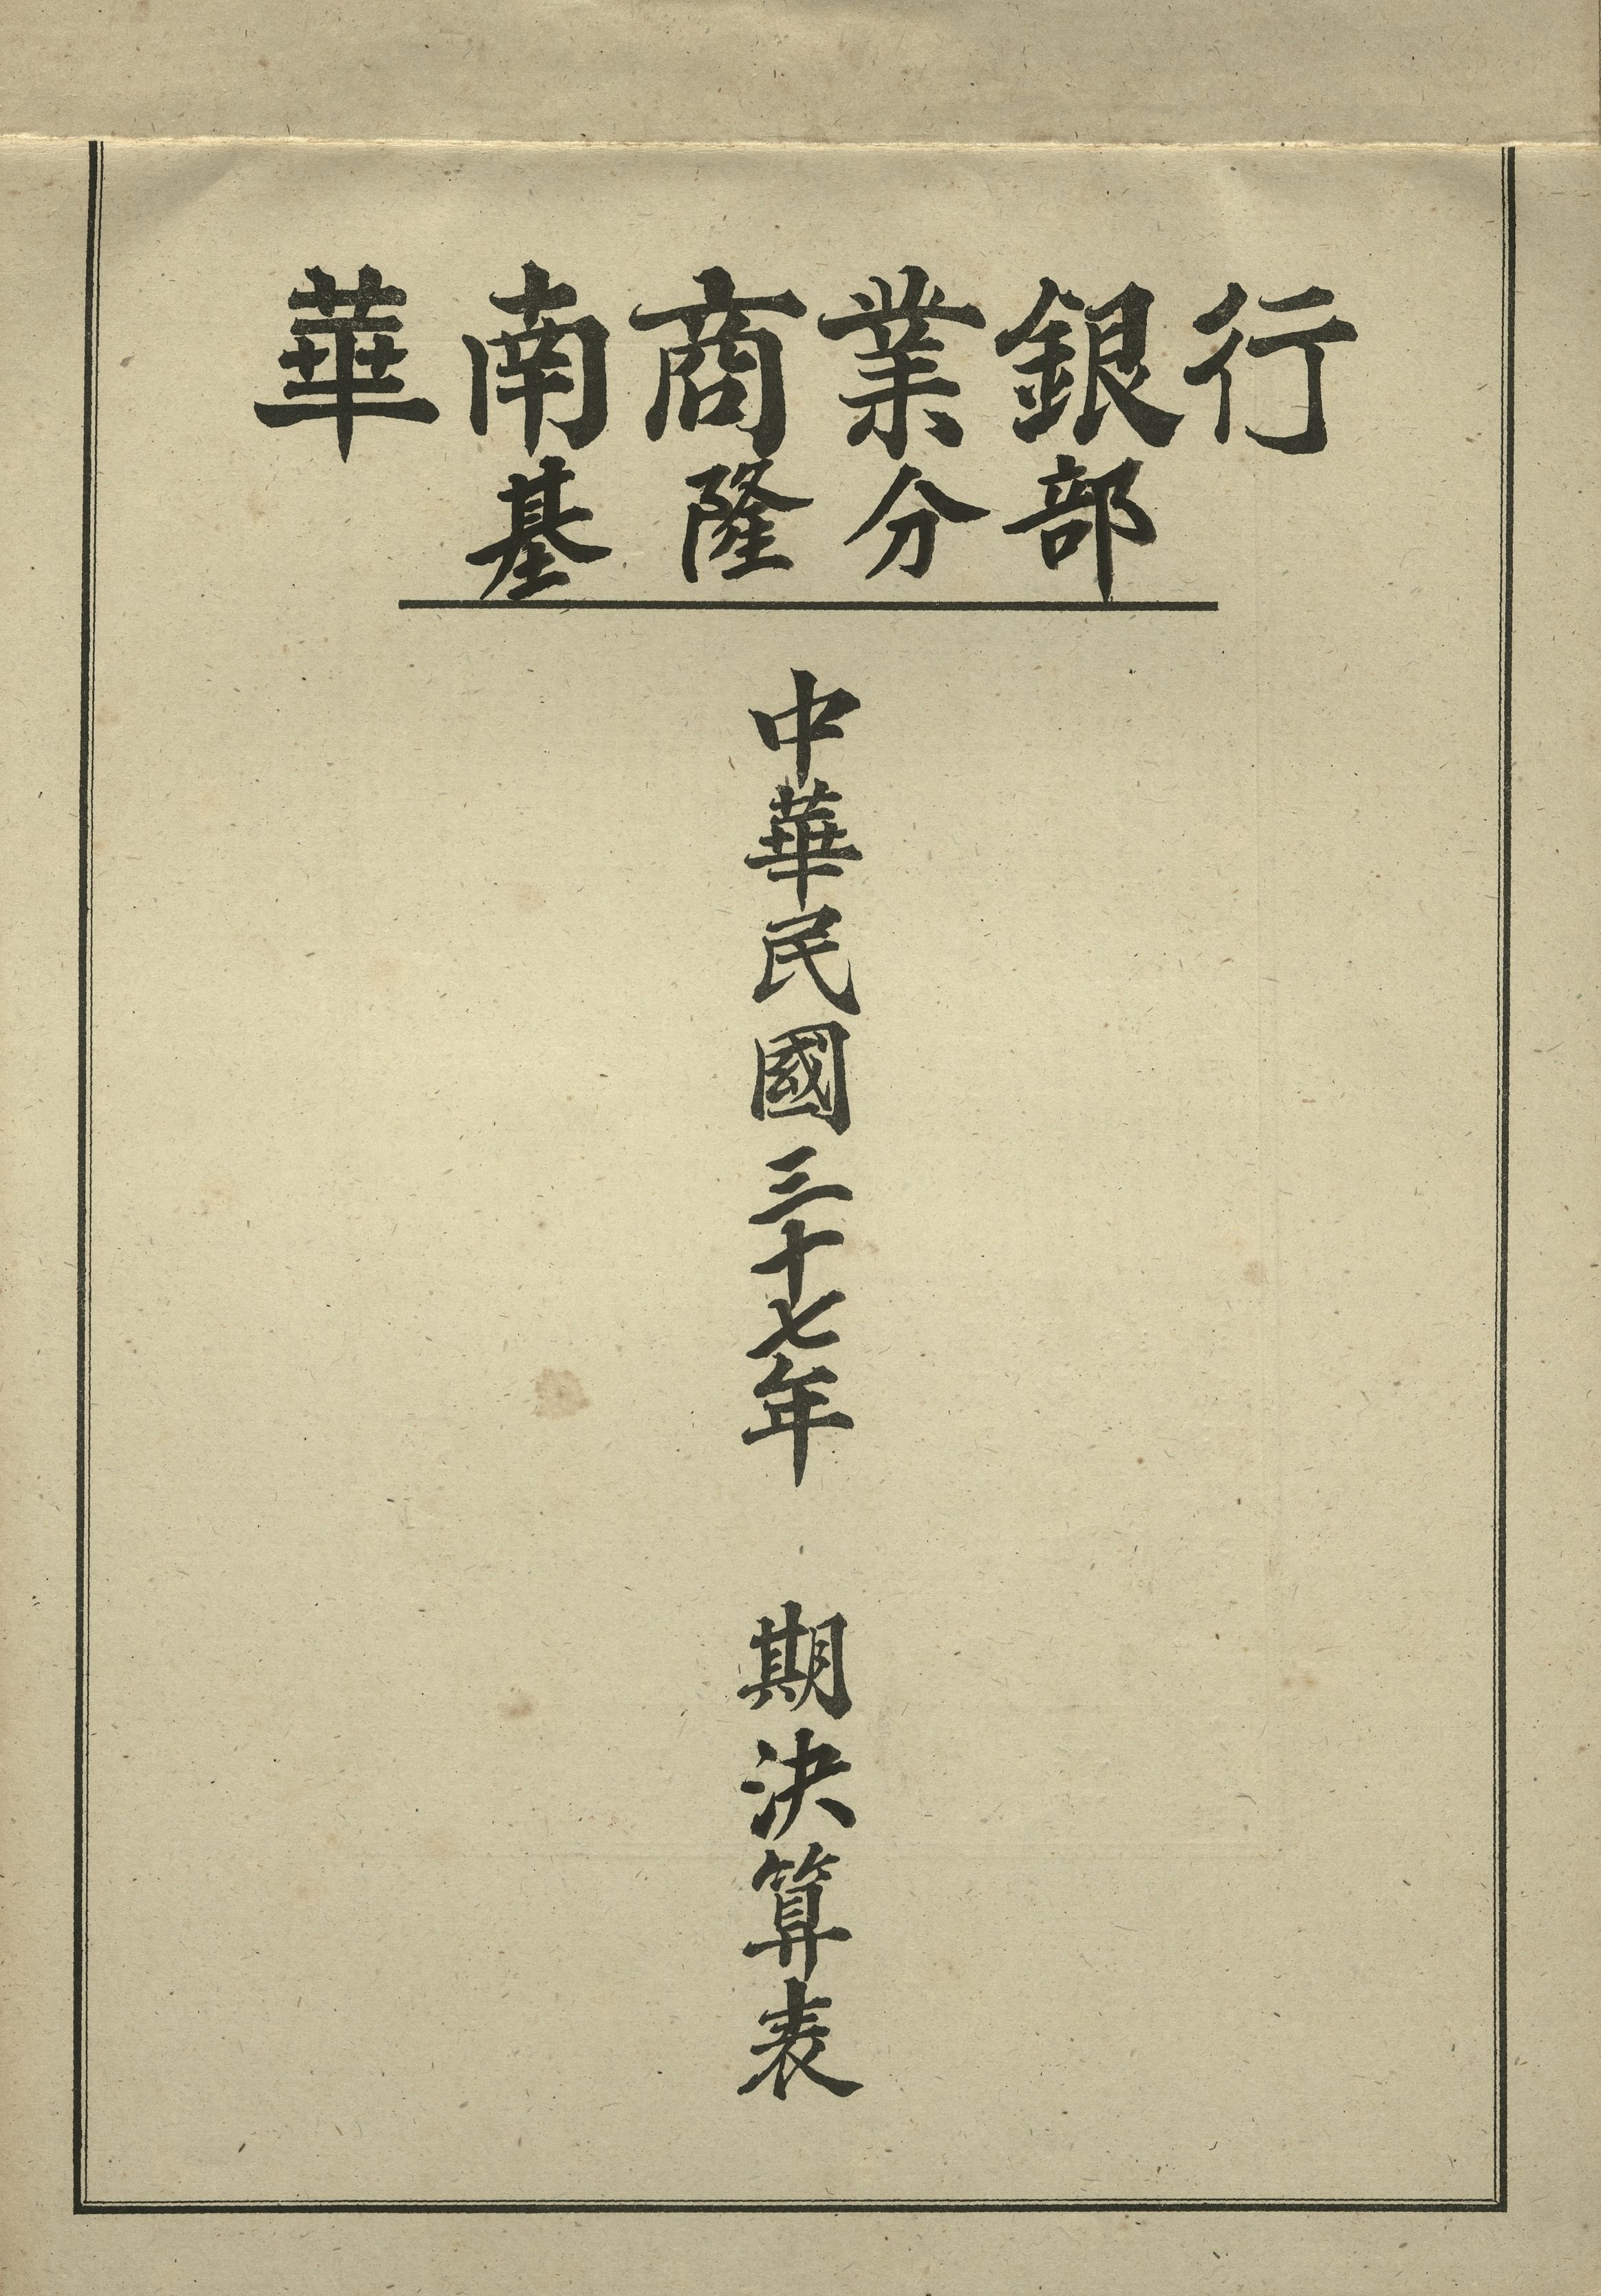 華南商業銀行
基隆分部
中華民國三十七年 期決算表